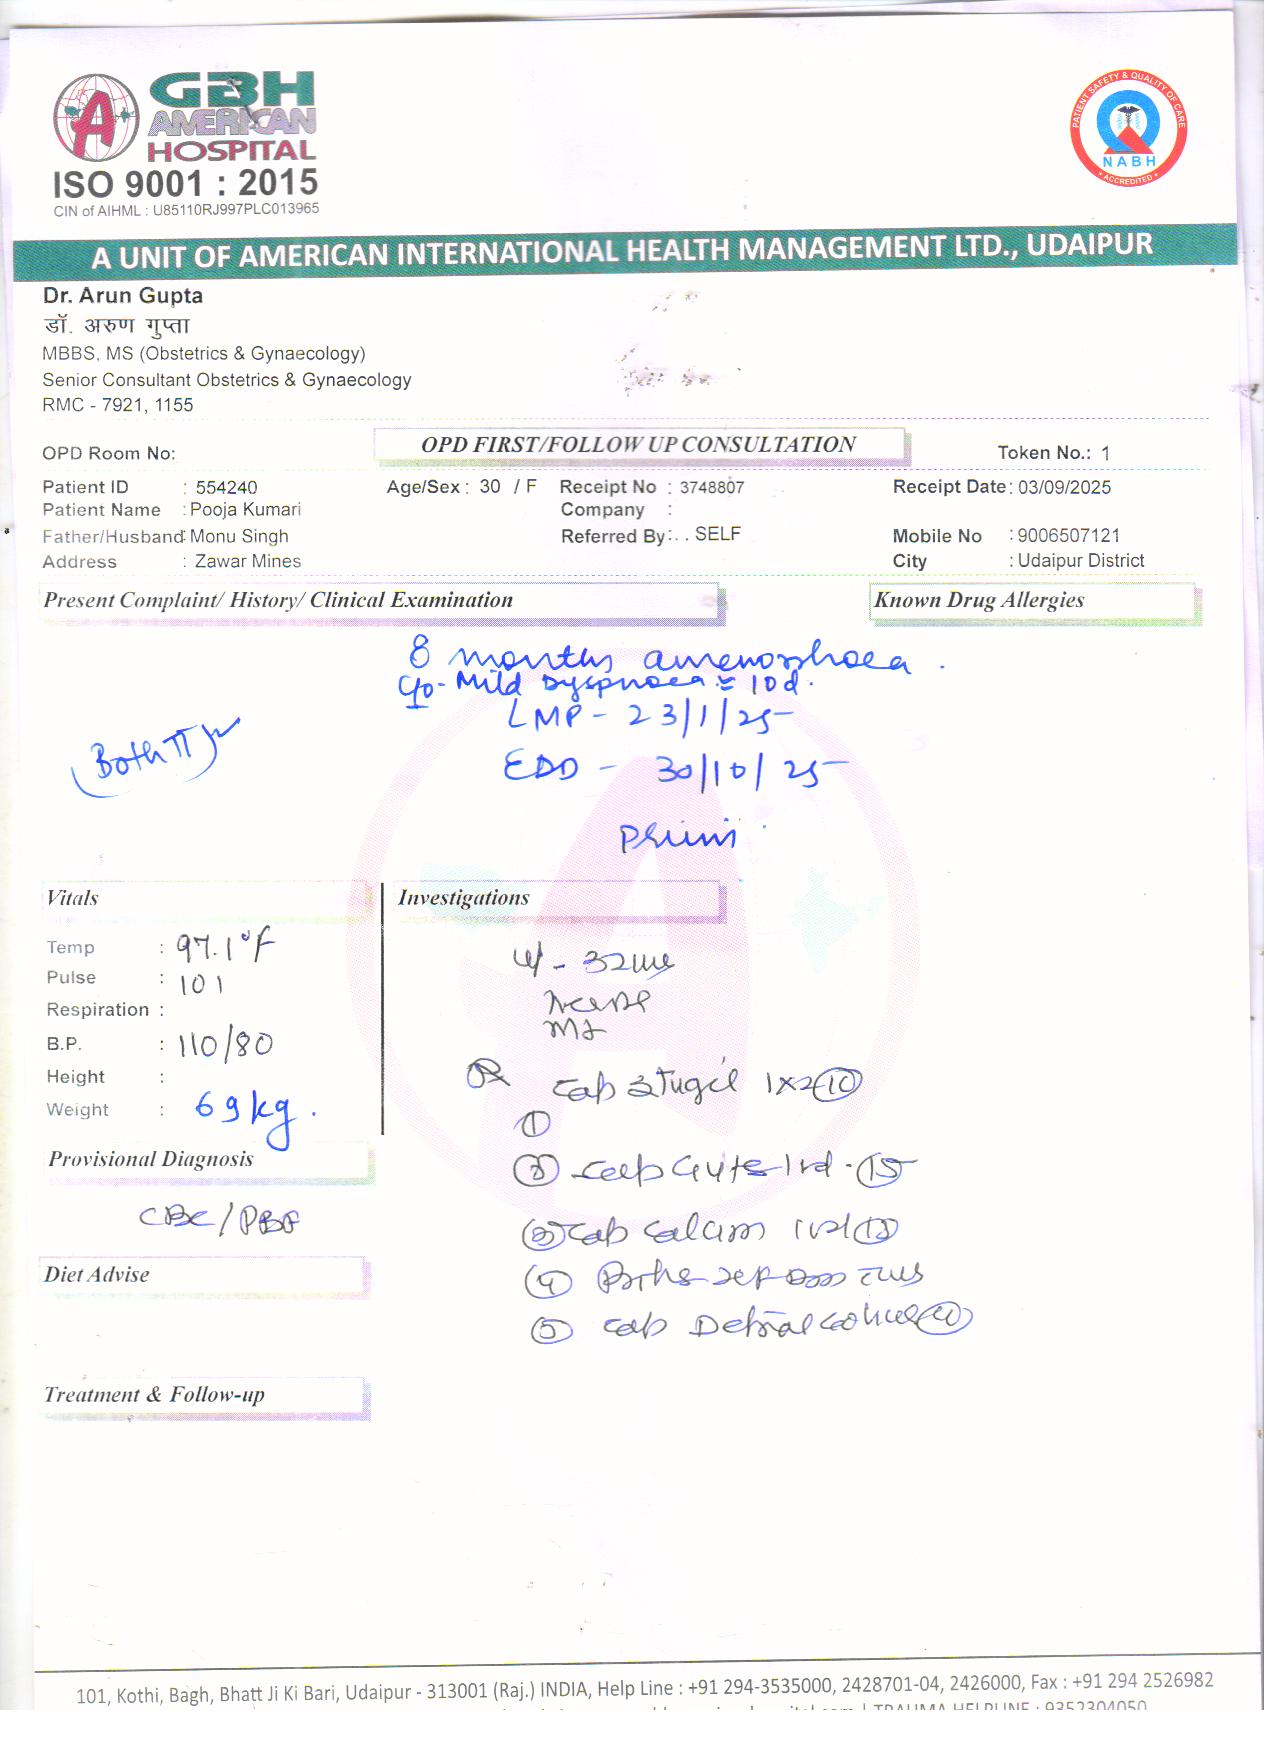 GBH
AMERICAN
HOSPITAL
ISO 9001 : 2015
CIN of AIHML : U85110RJ997PLC013965
PATIENT SAFETY & QUALITY OF CARE
NABH
ACCREDITED
A UNIT OF AMERICAN INTERNATIONAL HEALTH MANAGEMENT LTD., UDAIPUR
Dr. Arun Gupta
डॉ. अरुण गुप्ता
MBBS, MS (Obstetrics & Gynaecology)
Senior Consultant Obstetrics & Gynaecology
RMC - 7921, 1155
OPD Room No: OPD FIRST/FOLLOW UP CONSULTATION Token No.: 1
Patient ID : 554240 Age/Sex : 30 / F Receipt No : 3748807 Receipt Date: 03/09/2025
Patient Name : Pooja Kumari Company :
Father/Husband: Monu Singh Referred By: . . SELF Mobile No : 9006507121
Address : Zawar Mines City : Udaipur District
Present Complaint/ History/ Clinical Examination Known Drug Allergies
8 months amenorrhoea.
C/o - Mild Dyspnoea 10d.
LMP - 23/1/25
Both TT
EDD - 30/10/25
Primi
Vitals Investigations
Temp : 97.1°F
Pulse : 101
Respiration :
B.P. : 110/80
Height :
Weight : 69 kg.
Cap 1x2 10
①
②
③ Cap
④
⑤ Cap
Provisional Diagnosis
CBC/PBF
Diet Advise
Treatment & Follow-up
101, Kothi, Bagh, Bhatt Ji Ki Bari, Udaipur - 313001 (Raj.) INDIA, Help Line : +91 294-3535000, 2428701-04, 2426000, Fax : +91 294 2526982
TRAUMA HELPLINE : 9352304050